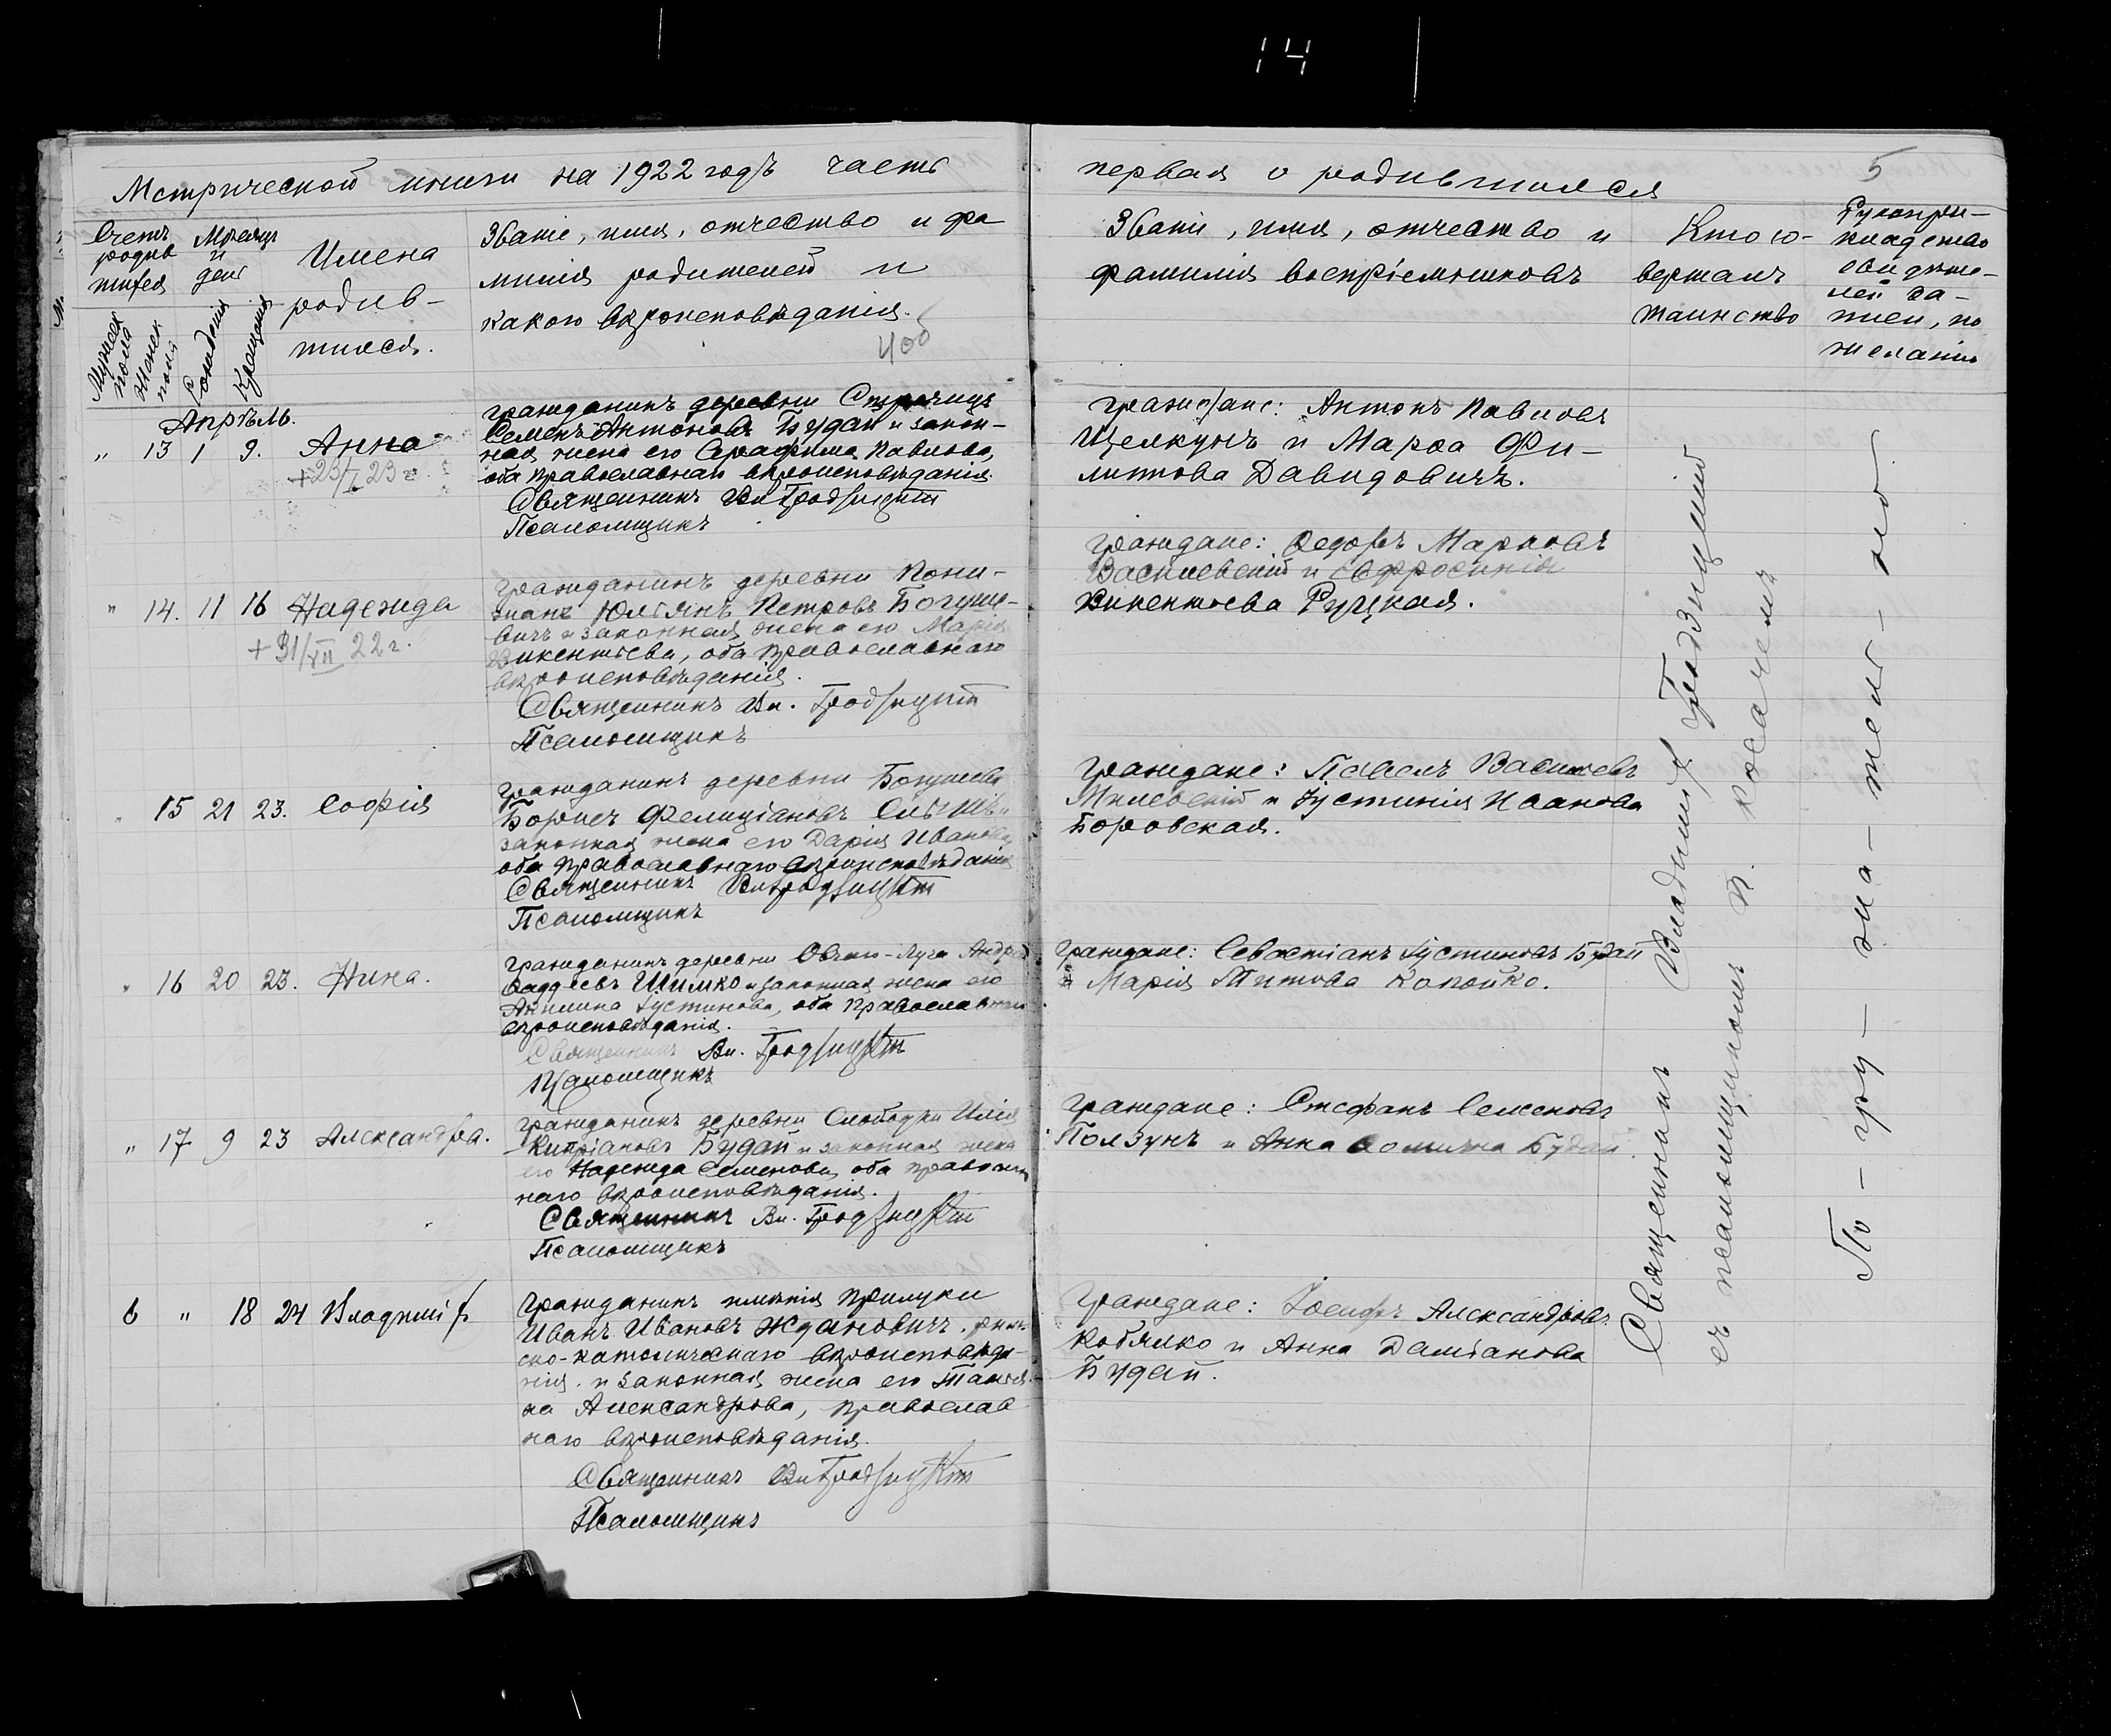 14
Метрической книги на 1922 годъ часть
первая о родившихся
5
Счетъ родив шихся
Мѣсяцъ и день
Мужеск пола
Женск пола
Рожденія
Крещенія
Имена
родив-
шихся.
Званіе, имя, отчество и фа
милія родителей и
какого вѣроисповѣданія.
400
Званіе, имя, отчество и
фамилія воспріемниковъ
Кто со-
вершалъ
таинство
Рукопри-
кладство
свидѣте-
лей за-
писи, по
желанію
Апрѣль.
„ 13 1 9. Анна
+23/I 23 г.
гражданинъ деревни
Семенъ Антоновъ Будай и закон-
ная жена его Серафима Павлова,
оба православнаго вѣроисповѣданія.
Священникъ Вл. Гродзицкій
Псаломщикъ
Граждане: Антонъ Павловъ
Щелкунъ и Марѳа Фи-
липпова Давидовичъ.
„ 14. 11 16 Надежда
+31/VII 22 г.
гражданинъ деревни
Юльянъ Петровъ Богуше-
вичъ и законная жена его Марія
Викентьева, оба православнаго
вѣроисповѣданія.
Священникъ Вл. Гродзицкій
Псаломщикъ
Граждане: Ѳедоръ Марковъ
Василевскій и Евфросинія
Викентьева Руцкая.
„ 15 21 23. Софія
гражданинъ деревни Богушева
Борисъ Фелиціановъ
законная жена его Дарія Иванова
оба православнаго вѣроисповѣданія
Священникъ Вл. Гродзицкій
Псаломщикъ
Граждане: Павелъ Васильевъ
Милевскій и Іустинія Иванова
Боровская.
„ 16 20 23. Нина.
гражданинъ деревни
Ѳаддеевъ Шимко и законная жена его
Акилина Іустинова, оба православнаго
вѣроисповѣданія.
Священникъ Вл. Гродзицкій
Псаломщикъ
Граждане: Севастіанъ Іустиновъ Будай
и Марія Титова Копойко.
„ 17 9 23 Александра.
гражданинъ деревни Слободки Илія
Кипріановъ Будай и законная жена
его Надежда Семенова, оба православ
наго вѣроисповѣданія.
Священникъ Вл. Гродзицкій
Псаломщикъ
Граждане: Стефанъ Семеновъ
Ползунъ и Анна Ѳомична Будай.
6 „ 18 24 Владиміръ
гражданинъ имѣнія Прилуки
Иванъ Ивановъ Ждановичъ, рим-
ско-католическаго вѣроисповѣда-
нія и законная жена его Татья-
на Александрова, православ
наго вѣроисповѣданія.
Священникъ Вл. Гродзицкій
Псаломщикъ
Граждане: Іосифъ Александровъ
Кобялко и Анна Даміанова
Будай.
Священникъ Владиміръ Гродзицкій
съ псаломщикомъ П. Косачемъ
По – гру – зна – тель – но